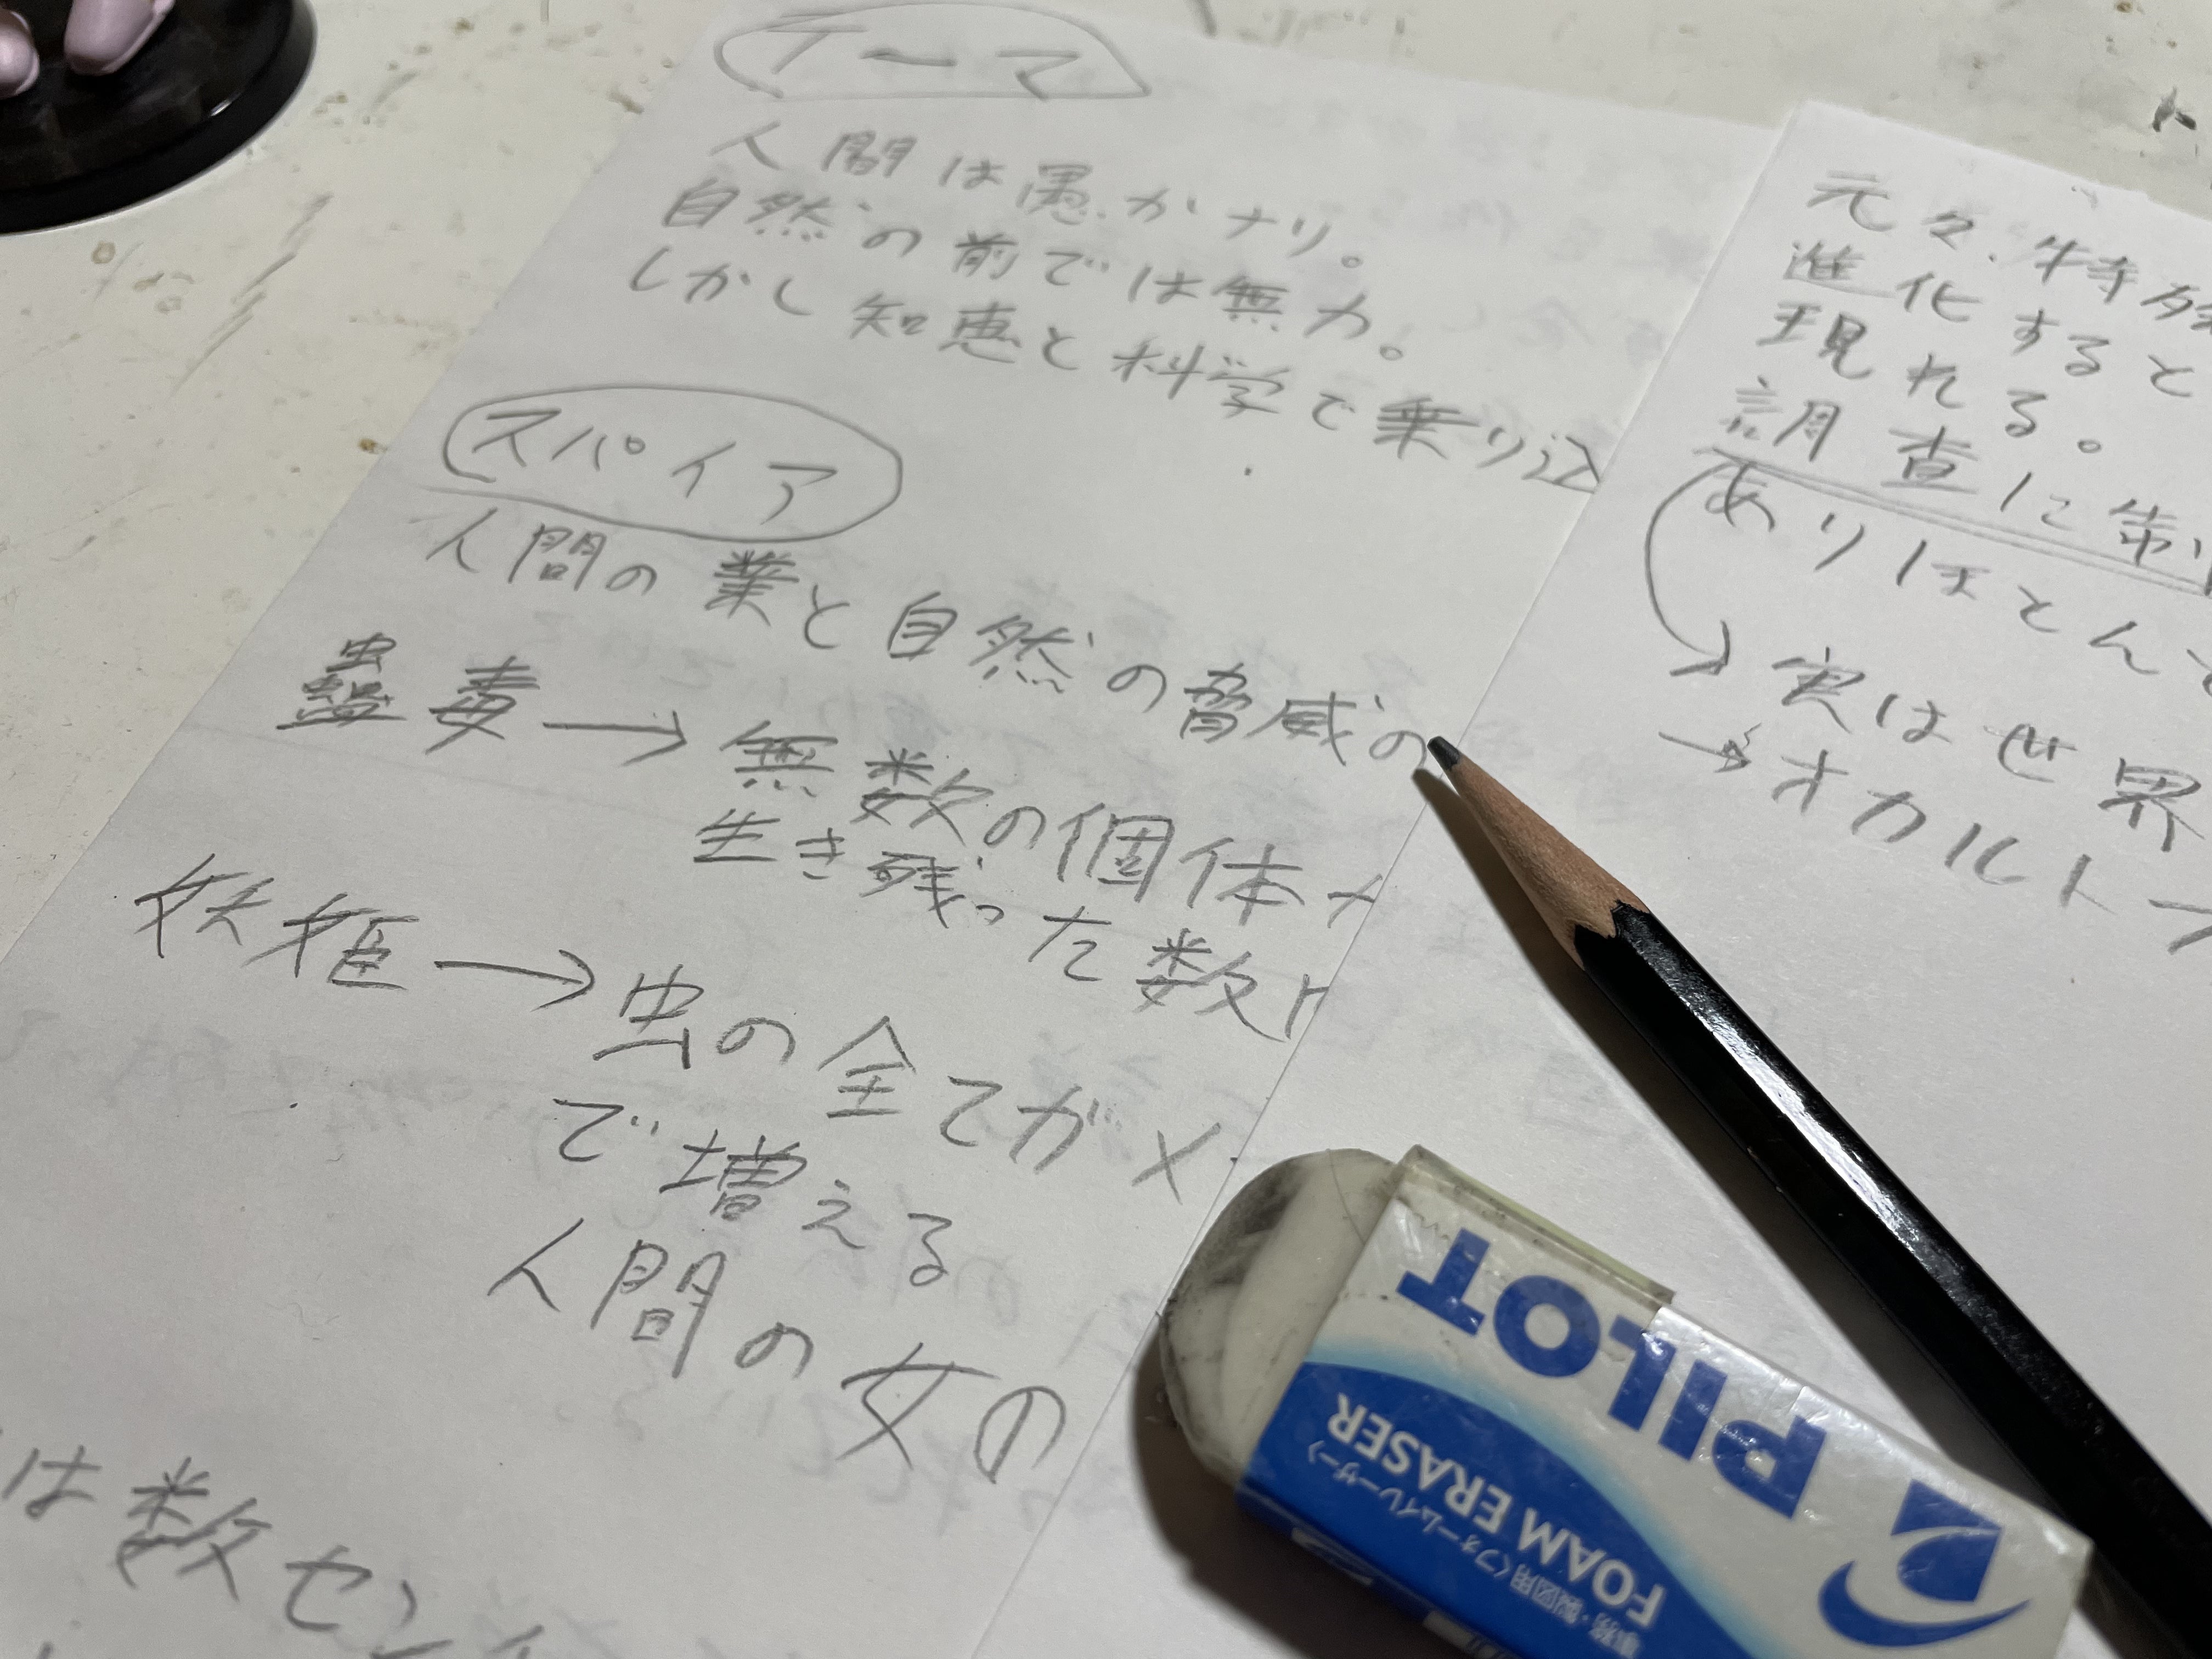 テーマ
人間は愚かナリ。
自然の前では無力。
しかし知恵と科学で乗り込
スパイア
人間の業と自然の脅威の
蠱毒→無数の個体
生き残った数
妖姫→虫の全てが
で増える
人間の女の
は数セン
元々、特殊
進化すると
現れる。
調査に制
ありほとんど
→実は世界
→オカルト
PILOT
FOAM ERASER
事務・製図用〈フォームイレーザー〉